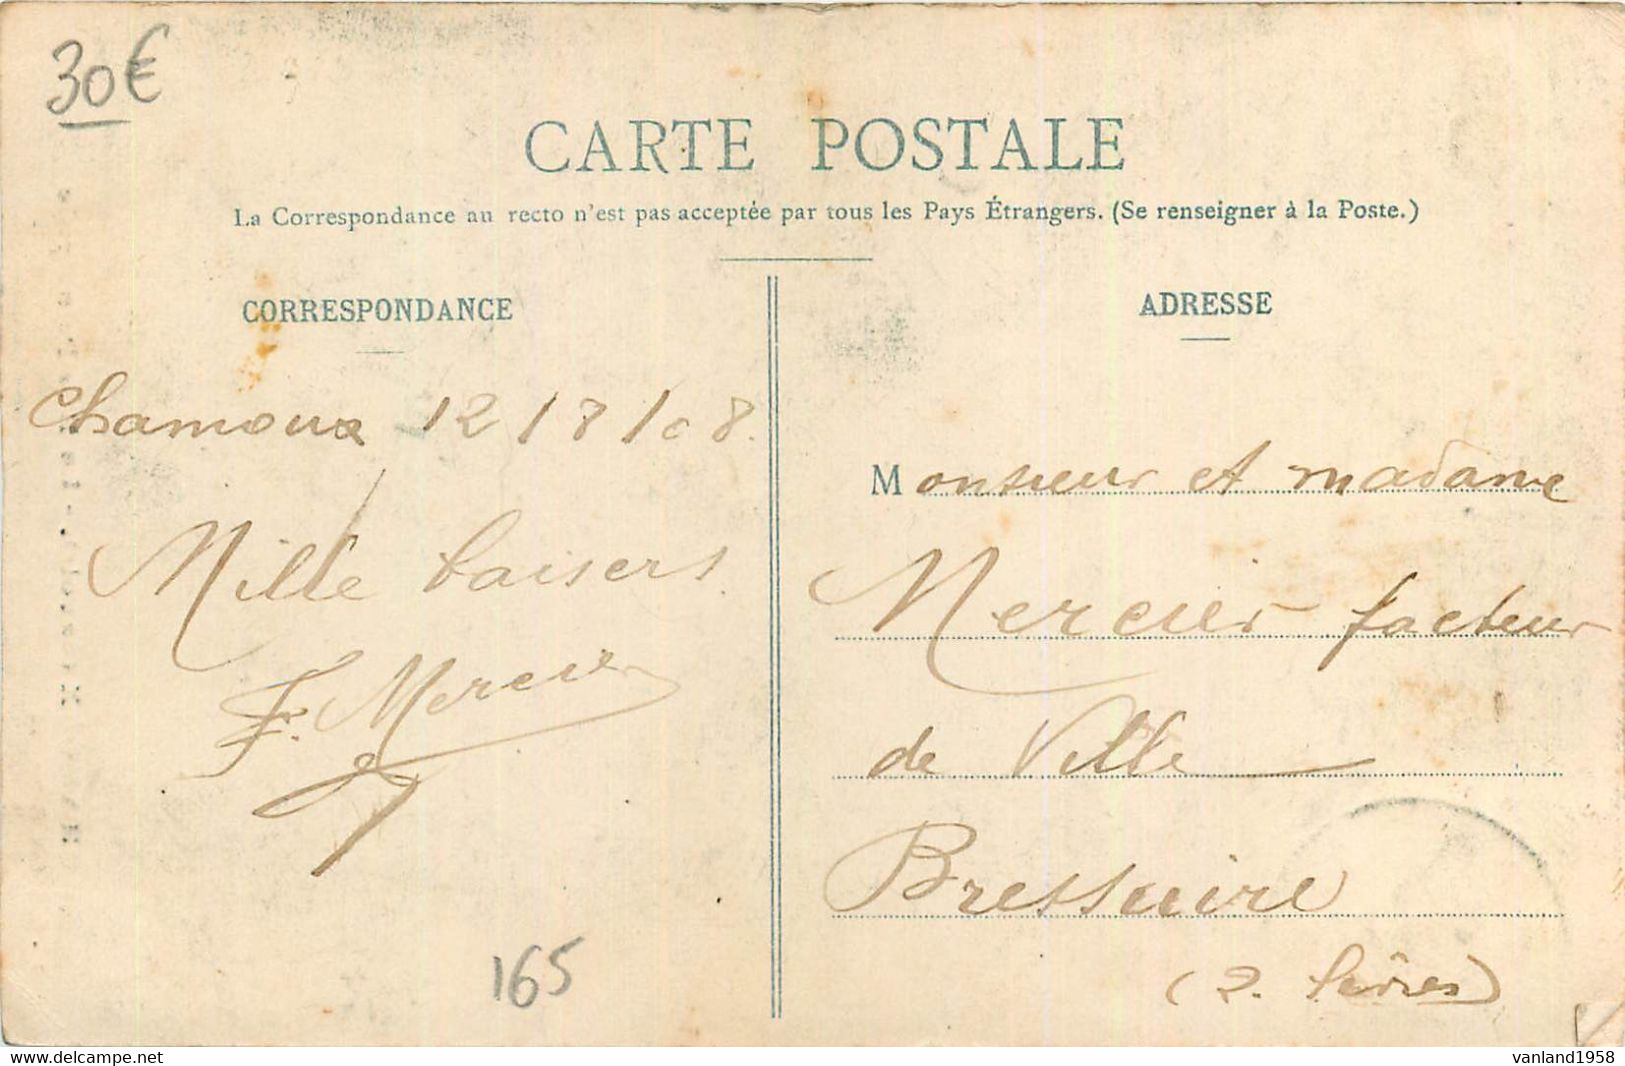 30€
CARTE POSTALE
La Correspondance au recto n'est pas acceptée par tous les Pays Étrangers. (Se renseigner à la Poste.)
CORRESPONDANCE
ADRESSE
Chamoux 12/8/08.
Mille baisers
F. Mercier
Monsieur et madame
Mercier facteur
de Ville
Bressuire
(2. Sèvres)
165
vanland1958